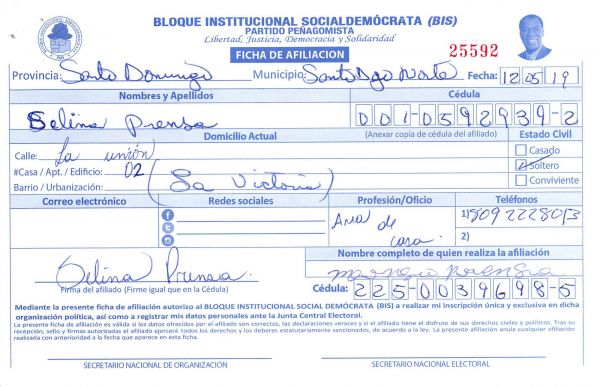 BLOQUE INSTITUCIONAL SOCIALDEMÓCRATA (BIS)
PARTIDO PEÑAGOMISTA
Libertad, Justicia, Democracia y Solidaridad
FICHA DE AFILIACION
25592
Provincia: Santo Domingo Municipio: Santo Dgo Norte Fecha: 12 05 19
Nombres y Apellidos Cédula
Selina Prensa 001-0592939-2
Domicilio Actual (Anexar copia de cédula del afiliado) Estado Civil
Calle: La unión Casado
#Casa / Apt. / Edificio: 02 Soltero
Barrio / Urbanización: (La Victoria) Conviviente
Correo electrónico Redes sociales Profesión/Oficio Teléfonos
Ama de casa 1) 8092228013
2)
Nombre completo de quien realiza la afiliación
Selina Prensa
Firma del afiliado (Firme igual que en la Cédula) Cédula: 225-0039698-5
Mediante la presente ficha de afiliación autorizo al BLOQUE INSTITUCIONAL SOCIAL DEMÓCRATA (BIS) a realizar mi inscripción única y exclusiva en dicha
organización política, así como a registrar mis datos personales ante la Junta Central Electoral.
La presente ficha de afiliación es válida si los datos ofrecidos por el afiliado son correctos, las declaraciones veraces y si el afiliado tiene el disfrute de sus derechos civiles y políticos. Tras su
recepción, sello y firmas autorizadas el afiliado ejercerá todos los derechos y los deberes estatutariamente sancionados, de acuerdo a la ley. La presente afiliación anula cualquier afiliación
realizada con anterioridad a la fecha que aparece en esta ficha.
SECRETARIO NACIONAL DE ORGANIZACIÓN SECRETARIO NACIONAL ELECTORAL